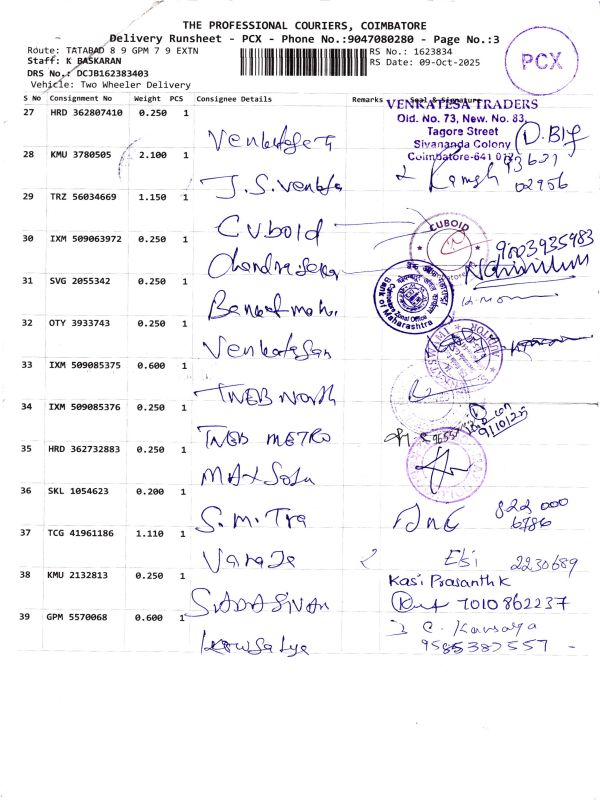 THE PROFESSIONAL COURIERS, COIMBATORE
Delivery Runsheet - PCX - Phone No.:9047080280 - Page No.:3
Route: TATABAD 8 9 GPM 7 9 EXTN
RS No.: 1623834
Staff: K BASKARAN
RS Date: 09-Oct-2025
DRS No.: DCJB162383403
Vehicle: Two Wheeler Delivery
PCX
S No Consignment No Weight PCS Consignee Details Remarks Seal & Signature
27 HRD 362807410 0.250 1
VENKATESA TRADERS
Old. No. 73, New. No. 83,
Tagore Street
Sivananda Colony
Coimbatore-641 012
28 KMU 3780505 2.100 1 J.S. Venkate
02956
29 TRZ 56034669 1.150 1 Cuboid
CUBOID
30 IXM 509063972 0.250 1 Chandrasekar
9003935983
31 SVG 2055342 0.250 1
Bank of Maharashtra
Coimbatore Zonal Office
32 OTY 3933743 0.250 1 Venkatesan
33 IXM 509085375 0.600 1 TNEB North
34 IXM 509085376 0.250 1 TNEB METRO
9/10/25
35 HRD 362732883 0.250 1
36 SKL 1054623 0.200 1 S.M. Tra
822 000
6786
37 TCG 41961186 1.110 1
2230689
38 KMU 2132813 0.250 1 SADASIVAN
Kasi Prasanth K
7010862237
39 GPM 5570068 0.600 1 Kowsalya
9585387557